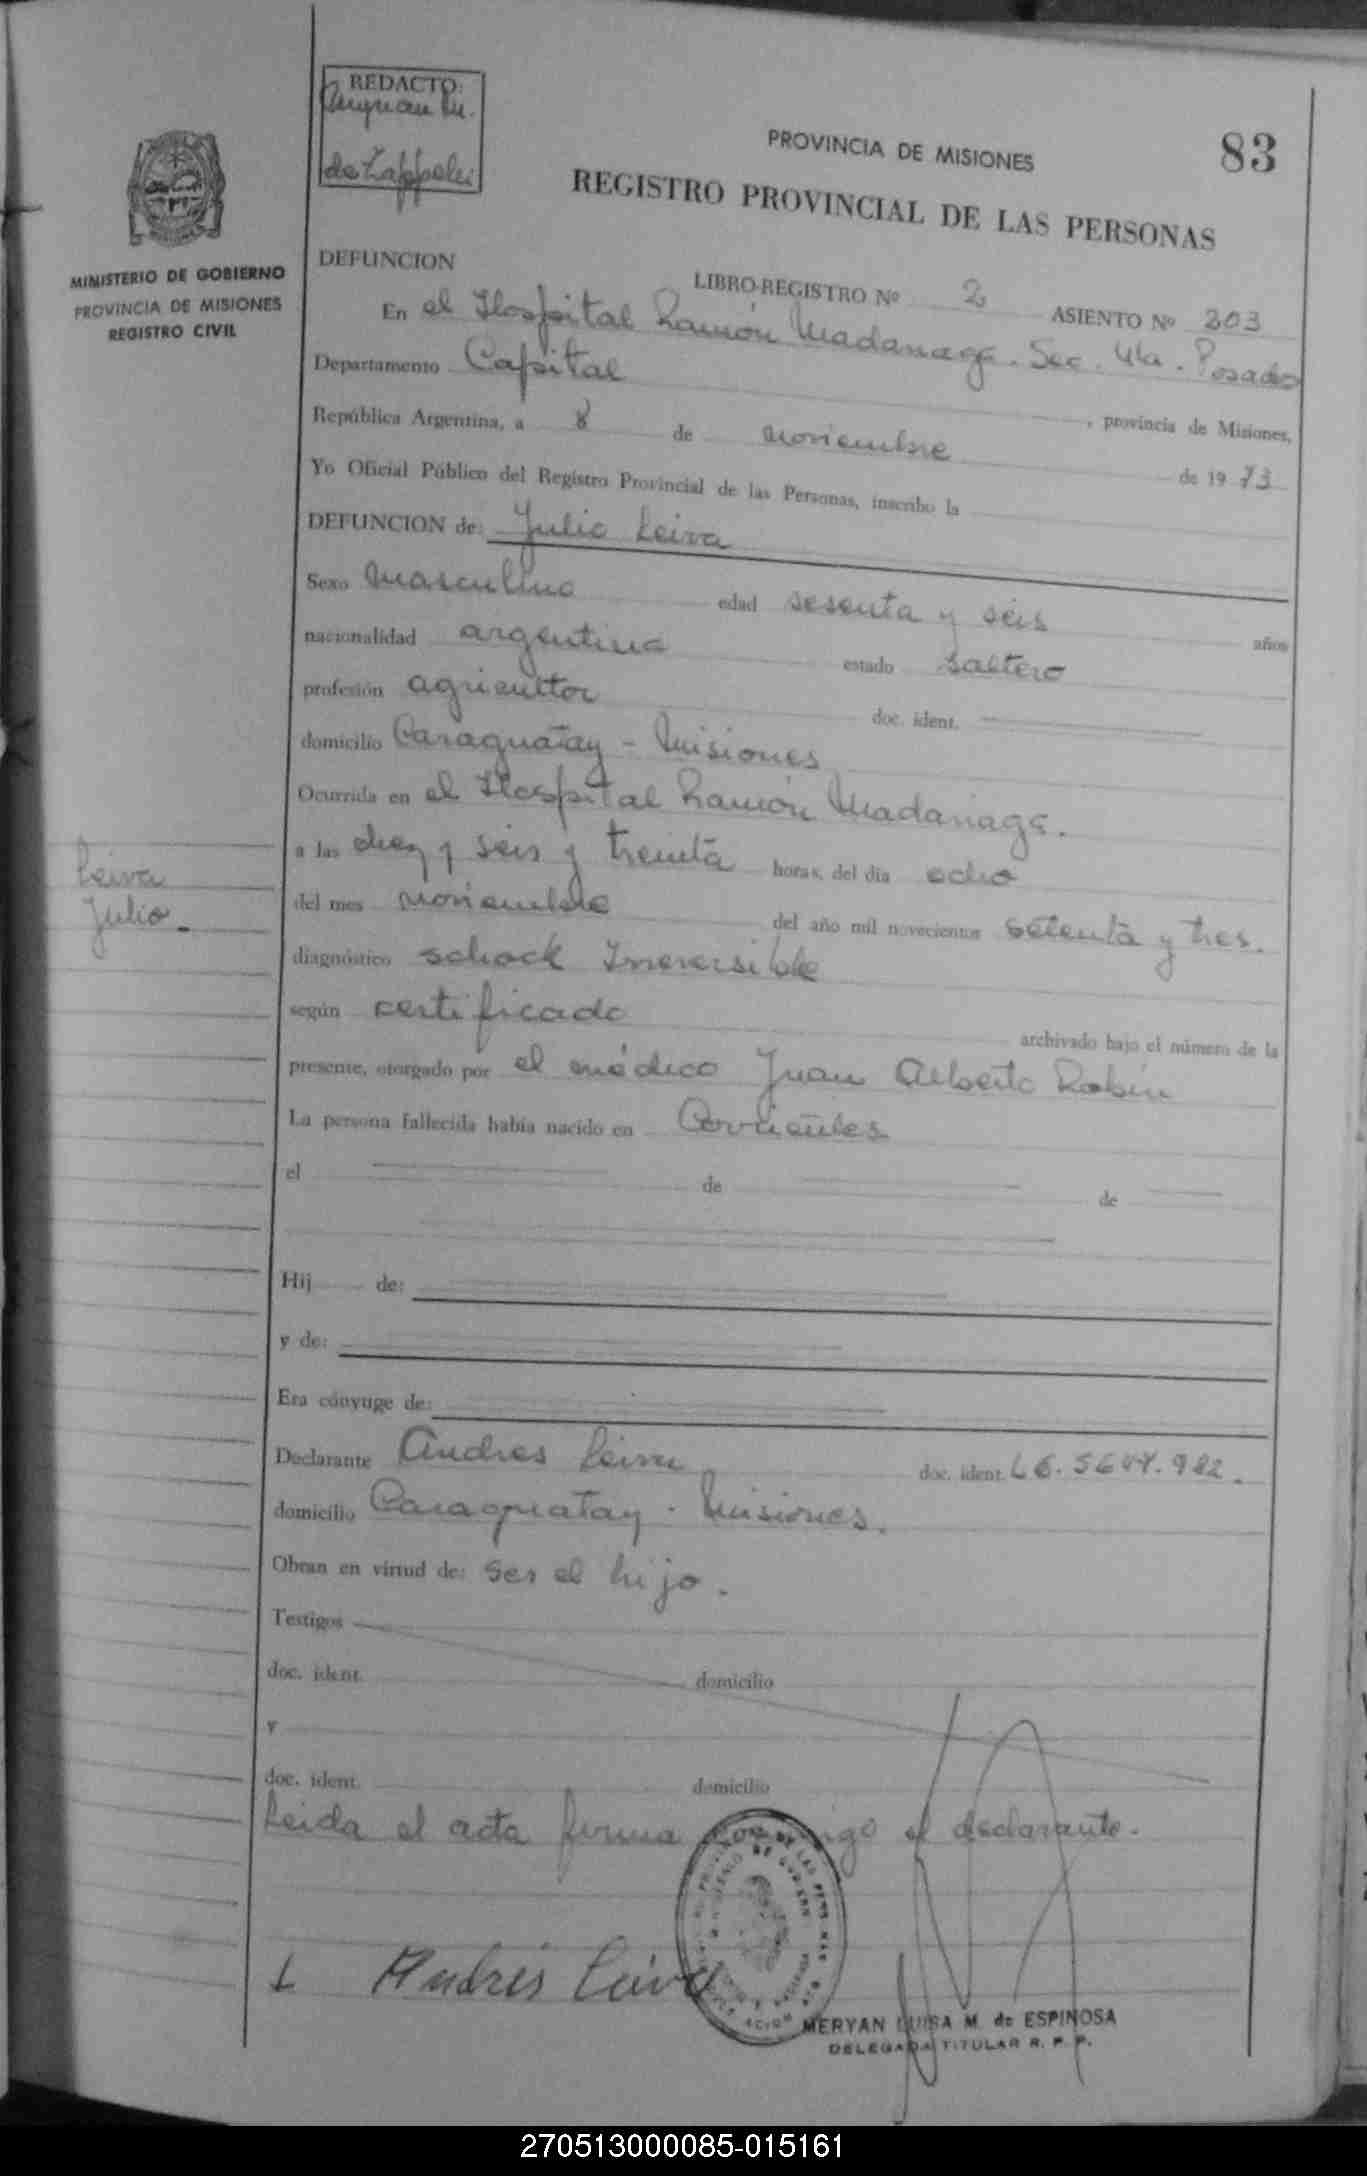 REDACTO:
Myrian M.
de Zappelli
PROVINCIA DE MISIONES
83
REGISTRO PROVINCIAL DE LAS PERSONAS
MINISTERIO DE GOBIERNO
PROVINCIA DE MISIONES
REGISTRO CIVIL
DEFUNCION
LIBRO-REGISTRO Nº 2 ASIENTO Nº 203
En el Hospital Ramón Madariaga. Sec. 4ta. Posadas
Departamento Capital, provincia de Misiones,
República Argentina, a 8 de noviembre de 1973
Yo Oficial Público del Registro Provincial de las Personas, inscribo la
DEFUNCION de: Julio Leiva
Sexo Masculino edad sesenta y seis años
nacionalidad argentina estado soltero
profesión agricultor doc. ident.
domicilio Caraguatay - Misiones
Ocurrida en el Hospital Ramón Madariaga.
a las diez y seis y treinta horas, del día ocho
del mes noviembre del año mil novecientos setenta y tres.
Leiva
Julio.
diagnóstico schock Irreversible
según certificado archivado bajo el número de la
presente, otorgado por el médico Juan Alberto Robin
La persona fallecida había nacido en Corrientes
el de de
Hij de:
y de:
Era cónyuge de:
Declarante Andres Leiva doc. ident. LE.
domicilio Caraguatay - Misiones.
Obran en virtud de: ser el hijo.
Testigos
doc. ident. domicilio
y
doc. ident. domicilio
Leida el acta firma el declarante.
Andrés Leiva
MERYAN LUISA M. de ESPINOSA
DELEGADA TITULAR R. P. P.
270513000085-015161